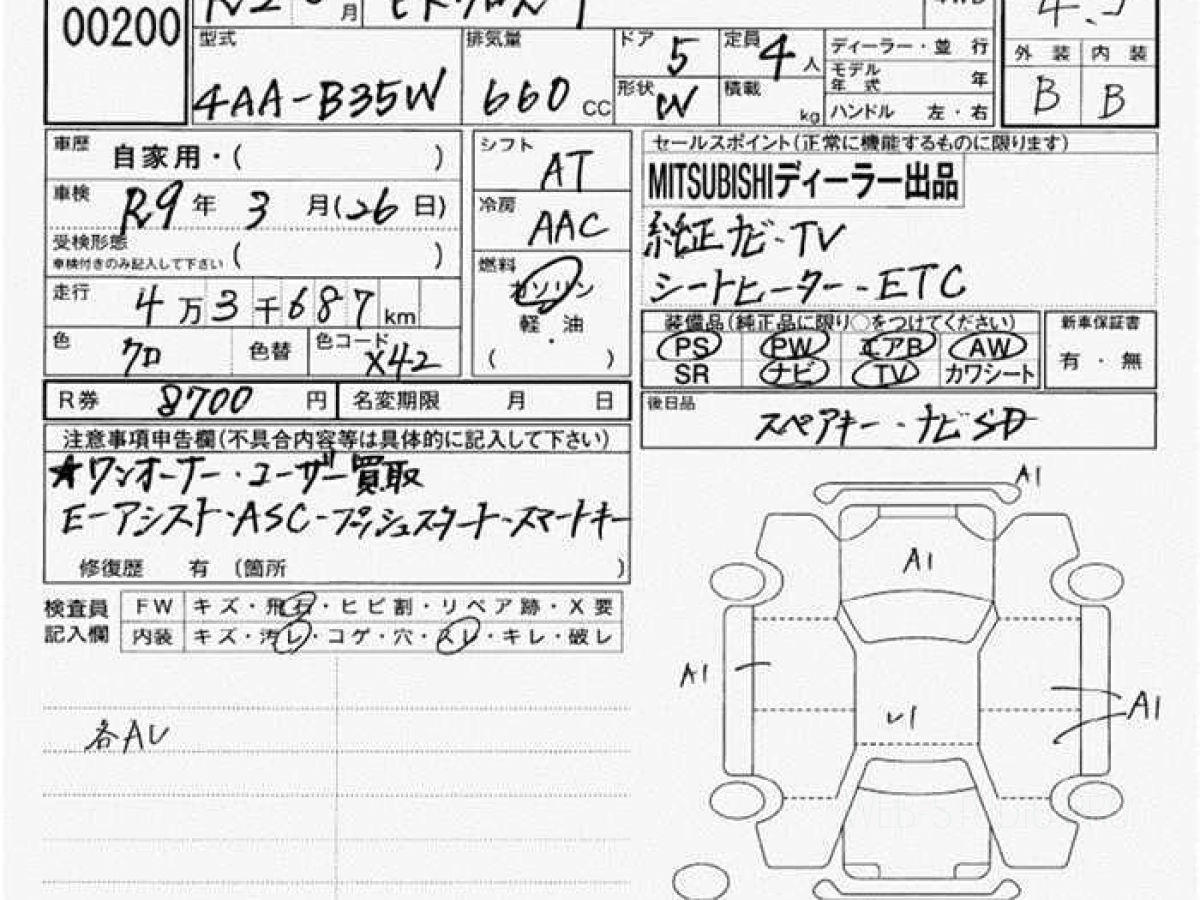 00200
月
型式 4AA-B35W
排気量 660 CC
ドア 5
定員 4 人
形状 W
積載 kg
ディーラー・並 行
モデル年式 年
ハンドル 左・右
外 装 内 装
B B
車歴 自家用・( )
車検 R9年 3月(26日)
受検形態
車検付きのみ記入して下さい ( )
走行 4万3千687km
色 クロ 色替 色コード X42
シフト AT
冷房 AAC
燃料 ガソリン
軽・油
( )
セールスポイント(正常に機能するものに限ります)
MITSUBISHIディーラー出品
純正ナビ・TV
シートヒーター・ETC
装備品(純正品に限り○をつけてください)
PS PW エアB AW
SR ナビ TV カワシート
新車保証書
有・無
R券 8700 円 名変期限 月 日
後日品 スペアキー・ナビSD
注意事項申告欄(不具合内容等は具体的に記入して下さい)
★ワンオーナー・ユーザー買取
E-アシスト・ASC-プッシュスタート・スマートキー
修復歴 有 (箇所 )
検査員記入欄
FW キズ・飛石・ヒビ割・リペア跡・X要
内装 キズ・汚レ・コゲ・穴・スレ・キレ・破レ
各Aレ
A1
A1
A1
レ1
A1